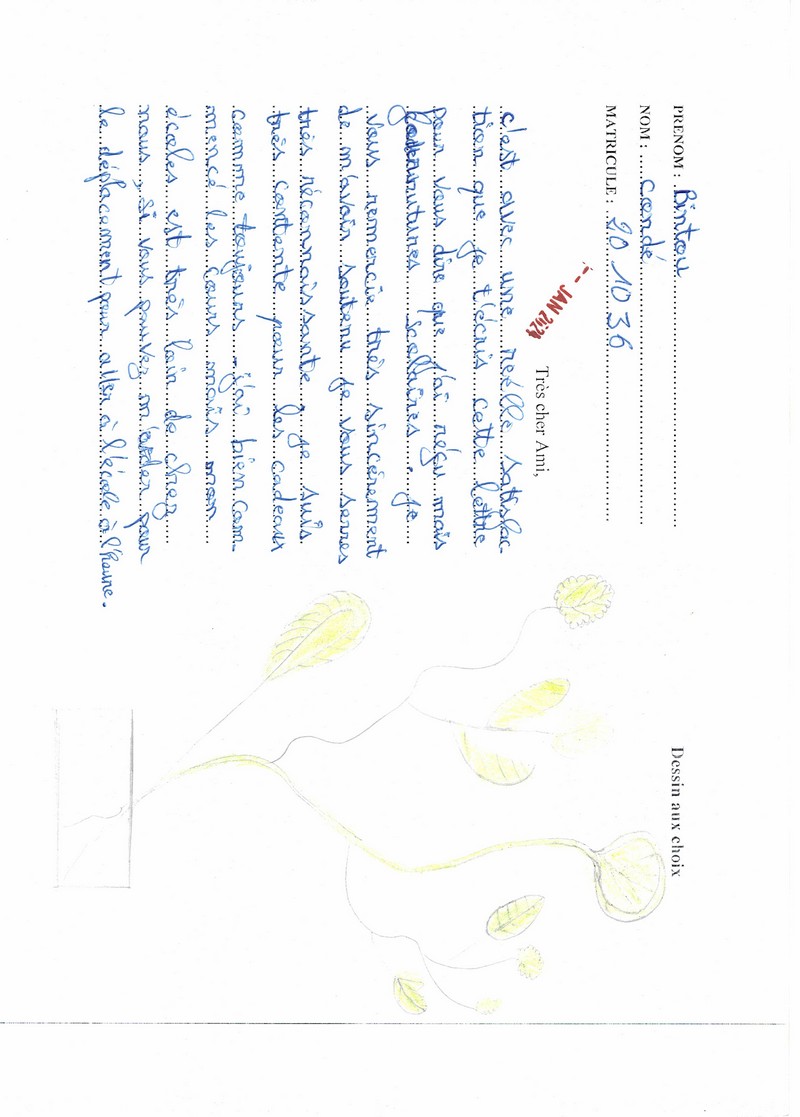 PRENOM : Bintou
NOM : Condé
MATRICULE : 20 10 36
-- JAN 2021
Très cher Ami,
c'est avec une reélle satisfac
tion que je t'écris cette lettre
pour vous dire que j'ai réçu mais
scollaires. je
vous remercie très sincèrement
de m'avoir soutenu je vous serres
très réconnaissante, je suis
très contente pour les cadeaux
comme toujours. j'ai bien com-
mencé les Cours mais mon
écoles est très loin de chez
nous, si vous pouvez m'aider pour
le déplacement pour aller à l'école à l'heure.
Dessin aux choix